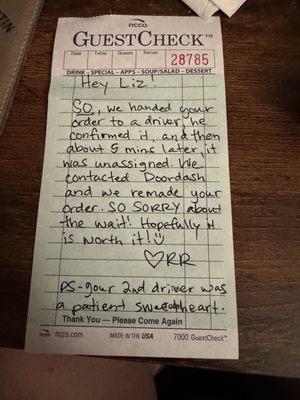 ncco
GUESTCHECK™
Date Table Guests Server
28785
DRINK - SPECIAL - APPS - SOUP/SALAD - DESSERT
Hey Liz.
SO, we handed your
order to a driver, he
confirmed it, and then
about 5 mins later, it
was unassigned. We
contacted Doordash
and we remade your
order. SO SORRY about
the wait! Hopefully it
is worth it! ☺
♡RR
PS-your 2nd driver was
a patient sweetheart.
Thank You — Please Come Again
ncco ncco.com MADE IN THE USA 7000 GuestCheck™